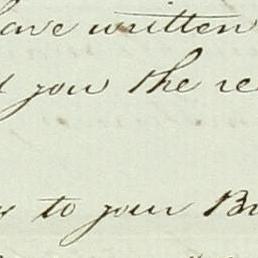 have written
you the re
to your Br